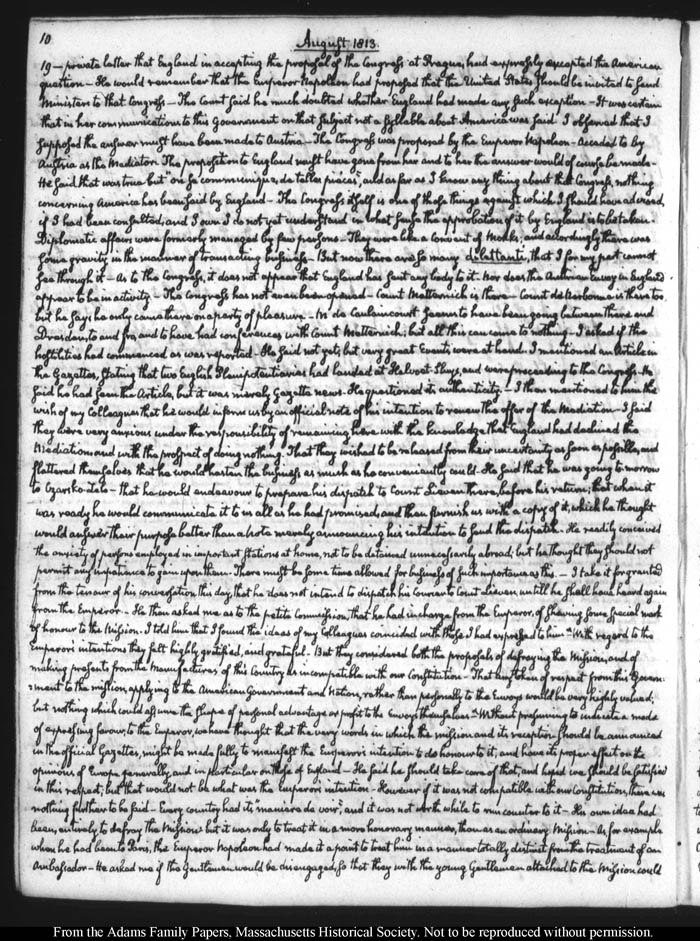 10
August 1813.
19 — private letter that England in accepting the proposal of the Congress at Prague, had expressly excepted the American
question — He would remember that the Emperor Napoleon had proposed that the United States should be invited to send
Ministers to that Congress — The Count said he much doubted whether England had made any such exception — It was certain
that in her communications to this Government on that subject not a syllable about America was said I observed that I
supposed the answer must have been made to Austria — The Congress was proposed by the Emperor Napoleon — acceded to by
Austria as the Mediator. The proposition to England must have gone from her and to her the answer would of course be made —
He said that was true but "on se communique, de telles pièces", and as far as I know any thing about that Congress, nothing
concerning America has been said by England — The Congress itself is one of those things against which I should have advised,
if I had been consulted; and I own I do not yet understand in what sense the approbation of it by England is to be taken.
Diplomatic affairs were formerly managed by few persons — They were like a convent of Monks; and accordingly there was
some gravity in the manner of transacting business — But now there are so many dilettanti, that I for my part cannot
see through it — As to the Congress, it does not appear that England has sent any body to it. Nor does the Austrian Envoy in England
appear to be in activity — The Congress has not even been opened — Count Metternich is there — Count de Narbonne is there too
but he says he only came there on a party of pleasure — Mr de Caulaincourt seems to have been going between there and
Dresden, to and fro, and to have had conferences with Count Metternich; but all this can come to nothing — I asked if the
hostilities had commenced as was reported — He said not yet; but very great Events were at hand. I mentioned an Article in
the Gazettes, stating that two English Plenipotentiaries had landed at Helvoet Sluys, and were proceeding to the Congress. He
said he had seen the Article, but it was merely Gazette news. He questioned its authenticity. — I then mentioned to him the
wish of my Colleagues that he would inform us by an official note of his intention to renew the offer of the Mediation — I said
they were very anxious under the responsibility of remaining here with the knowledge that England had declined the
Mediation and with the prospect of doing nothing. That they wished to be released from their uncertainty as soon as possible, and
flattered themselves that he would hasten the business as much as he conveniently could. He said that he was going to-morrow
to Czarsko-Zelo — that he would endeavour to prepare his dispatch to Count Lieven there, before his return; that when it
was ready he would communicate it to us all as he had promised; and then furnish us with a copy of it, which he thought
would answer their purpose better than a Note merely announcing his intention to send the dispatch. He readily conceived
the anxiety of persons employed in important stations at home, not to be detained unnecessarily abroad; but he thought they should not
permit any impatience to gain upon them. There must be some time allowed for business of such importance as this. — I take it for granted
from the tenour of his conversation this day, that he does not intend to dispatch his Courier to Count Lieven until he shall have heard again
from the Emperor — He then asked me as to the petite Commission, that he had in charge from the Emperor, of shewing some special mark
of honour to the Mission. I told him that I found the ideas of my Colleagues coincided with those I had expressed to him — With regard to the
Emperor's intentions they felt highly gratified, and grateful — But they considered both the proposals of defraying the Mission, and of
making presents from the Manufactures of this Country as incompatible with our Constitution — That any token of respect from this Govern-
ment to the mission, applying to the American Government and Nation, rather than personally to the Envoys would be very highly valued;
but nothing which could assume the shape of personal advantage or profit to the Envoys themselves — Without presuming to indicate a mode
of expressing favour, to the Emperor, we have thought that the very words in which the mission and its reception should be announced
in the official Gazettes, might be made fully to manifest the Emperor's intention to do honour to it, and have its proper effect on the
opinions of Europe generally, and in particular on those of England — He said he should take care of that, and hoped we should be satisfied
in this respect; but that would not be what was the Emperor's intention — However if it was not compatible with our Constitution, there was
nothing further to be said — Every country had its "maniere de voir," and it was not worth while to run counter to it — His own idea had
been, entirely to defray the Mission; but it was only to treat it in a more honorary manner, than as an ordinary Mission — As for example
when he had been to Paris, the Emperor Napoleon had made it a point to treat him in a manner totally distinct from the treatment of an
Ambassador — He asked me if the Gentlemen would be disengaged, so that they with the young Gentlemen attached to the Mission could
From the Adams Family Papers, Massachusetts Historical Society. Not to be reproduced without permission.